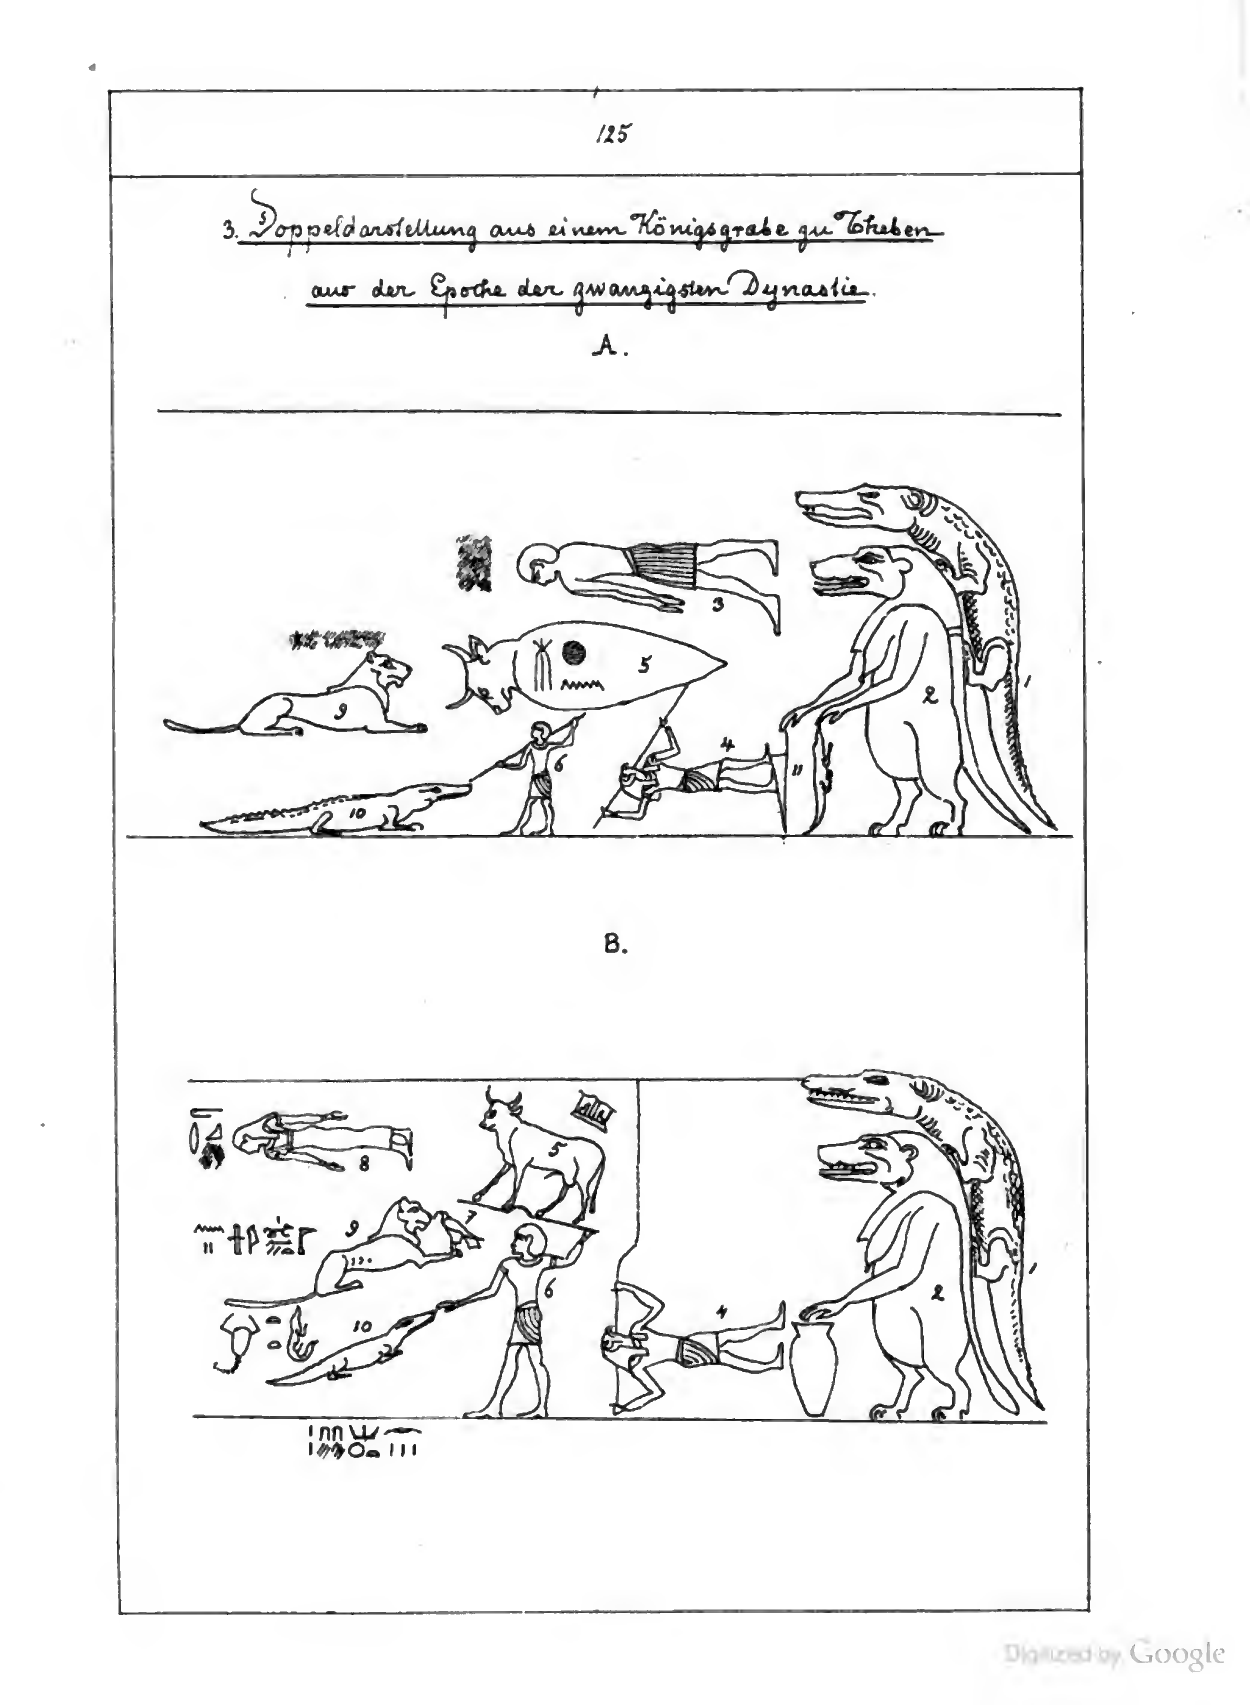 125
3. Doppeldarstellung aus einem Königsgrabe zu Theben
aus der Epoche der zwanzigsten Dynastie.
A.
1
2
3
4
5
6
9
10
11
B.
1
2
4
5
6
7
8
9
10
Digitized by Google